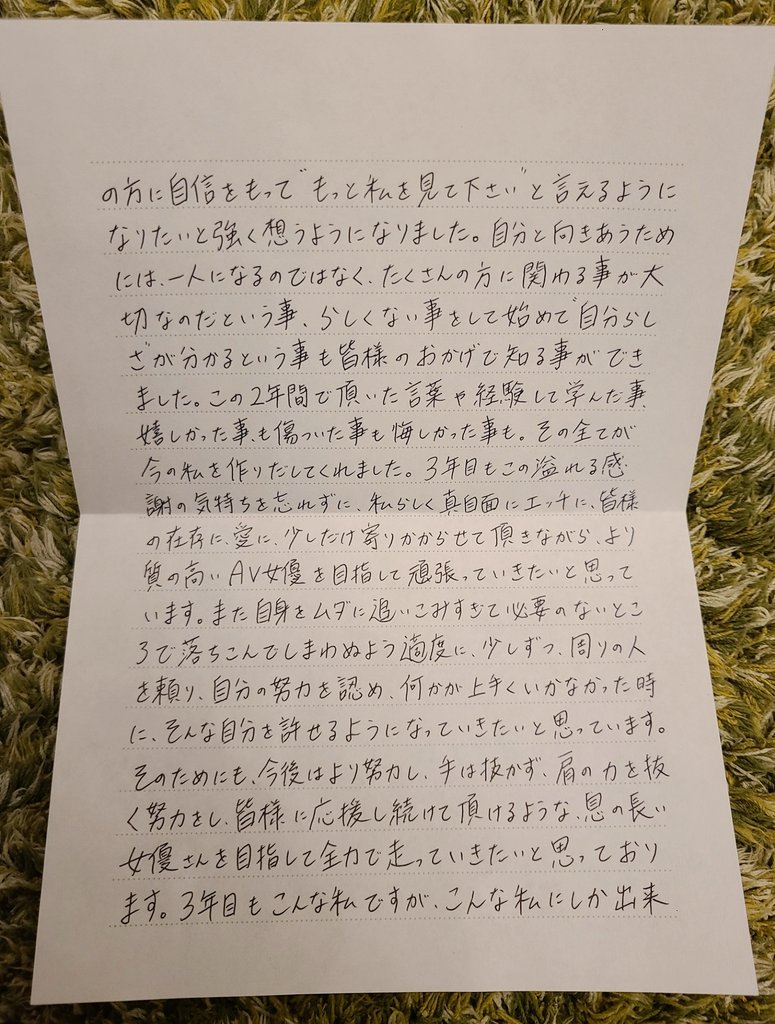 の方に自信をもって"もっと私を見て下さい"と言えるように
なりたいと強く想うようになりました。自分と向きあうため
には、一人になるのではなく、たくさんの方に関わる事が大
切なのだという事、らしくない事をして始めて"自分らし
さ"が分かるという事も皆様のおかげで知る事ができ
ました。この2年間で頂いた言葉や経験して学んだ事、
嬉しかった事も傷ついた事も悔しかった事も。その全てが
今の私を作りだしてくれました。3年目もこの溢れる感
謝の気持ちを忘れずに、私らしく真面目にエッチに、皆様
の在存に、愛に、少しだけ寄りかからせて頂きながら、より
質の高いAV女優を目指して頑張っていきたいと思って
います。また自身をムダに追いこみすぎて必要のないとこ
ろで落ちこんでしまわぬよう適度に、少しずつ、周りの人
を頼り、自分の努力を認め、何かが上手くいかなかった時
に、そんな自分を許せるようになっていきたいと思っています。
そのためにも、今後はより努力し、手は抜かず、肩の力を抜
く努力をし、皆様に応援し続けて頂けるような、息の長い
女優さんを目指して全力で走っていきたいと思っており
ます。3年目もこんな私ですが、こんな私にしか出来